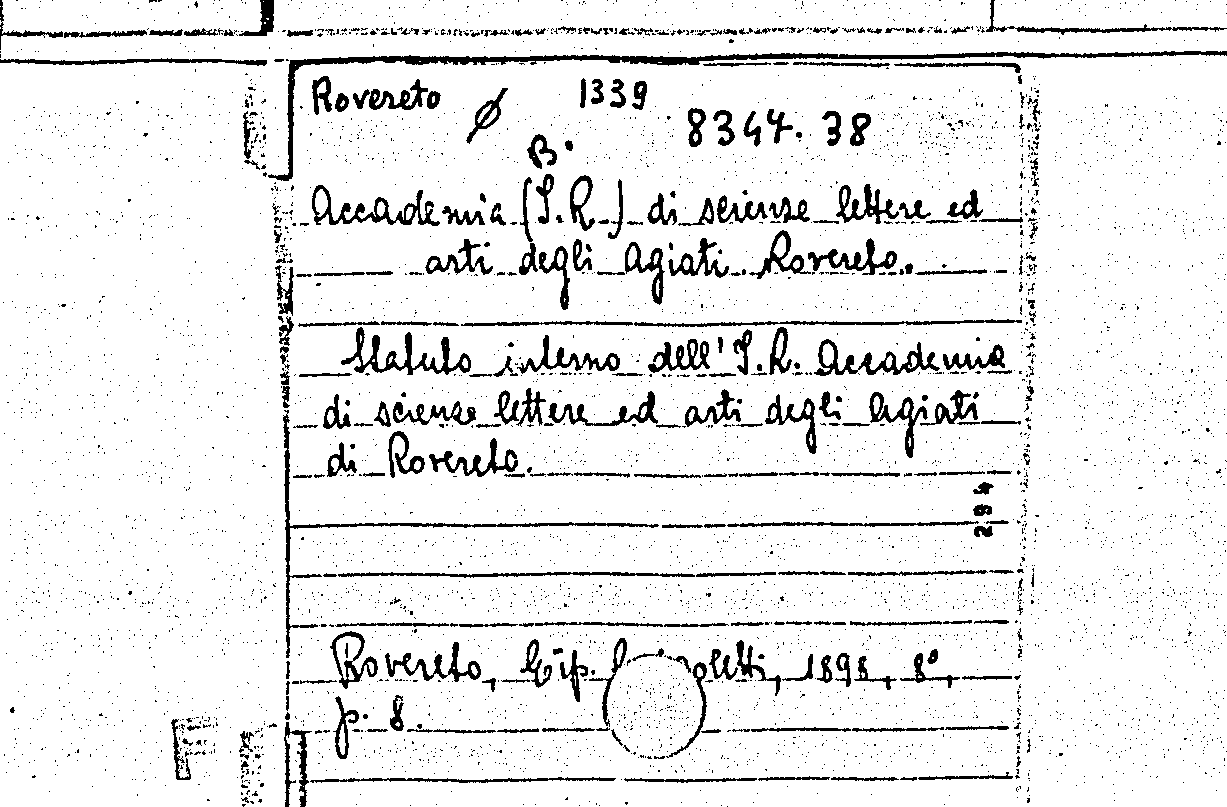 Rovereto ∅ 1339
8344.38
B.
Accademia (I.R.) di scienze lettere ed
arti degli Agiati Rovereto.
Statuto interno dell' I.R. Accademia
di scienze lettere ed arti degli Agiati
di Rovereto.
294
Rovereto, Tip. 1898, 8°,
p. 8.
F